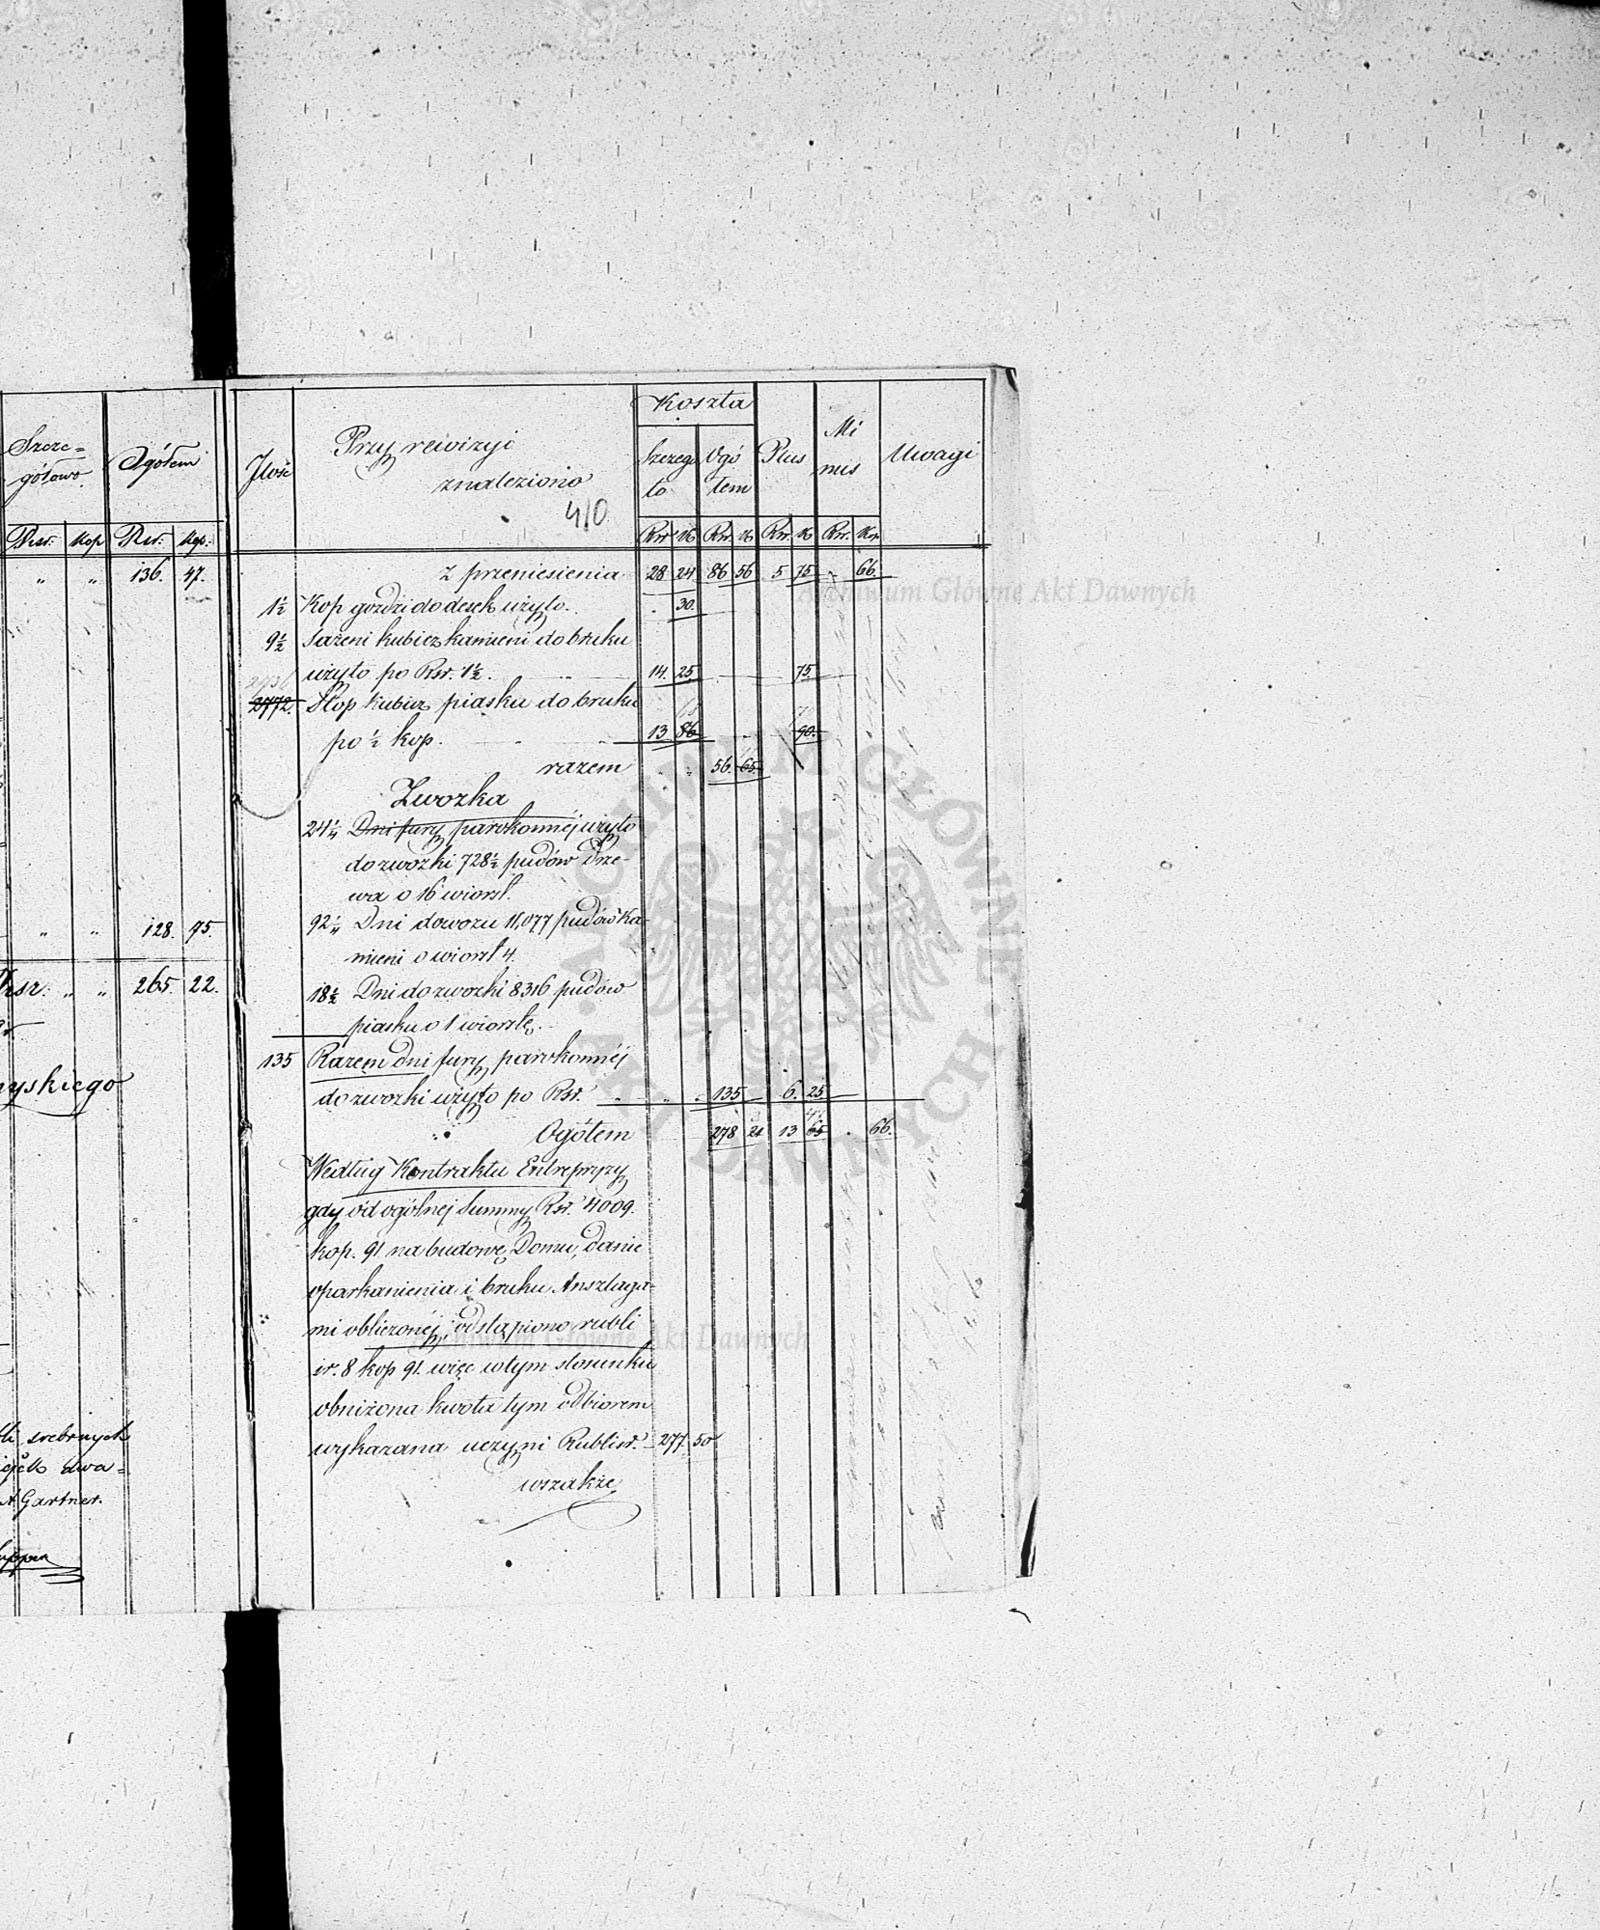 Szcze=
gółowo
Ogółem
Rsr. Kop Rsr. Kop.
" " 136. 47.
" " 128. 95.
Rsr. " " 265. 22.
yskiego
li srebrnych
dwa=
A Gartner.
Ilość
Przy rewizyi
znaleziono
410
Koszta
Szczegó
ło
Ogó
łem
Plus
Mi
nus
Uwagi
Rsr Ko Rsr. Ko Rsr. Ko Rsr. Ko
z przeniesienia 28 24 86 56 5 75 " 66.
1½ Kop goździ do desek użyto. . 30.
9½ Sażeni kubicz kamieni do bruku
użyto po Rsr. 1½. 14. 25. 75.
2772. Stop kubicz piasku do bruku
po ½ kop. 13 86 90.
razem " " 56. 65.
Zwózka
24½ Dni fury parokonnéj użyto
do zwózki 728½ pudów Drze-
wa o 16 wiorst.
92½ Dni dowozu 11,077 pudów Ka-
mieni o wiorst 4.
18½ Dni do zwózki 8316 pudów
piasku o 1 wiorstę.
135 Razem dni fury parokonnéj
do zwózki użyto po Rsr. " " 135 6. 25
Ogółem 278 21 13 65 . 66.
Według Kontraktu Entrepryzy
gdy od ogólnej Summy Rsr. 4009.
kop. 91 na budowę Domu, danie
oparkanienia i bruku Anszlaga-
mi obliczonéj, odstąpiono rubli
sr. 8 kop 91. więc w tym stosunku
obniżona kwota tym odbiorem
wykazana uczyni Rubli sr. 277. 50
wszakże
Archiwum Główne Akt Dawnych
Archiwum Główne Akt Dawnych
ARCHIWUM GŁÓWNE AKT DAWNYCH